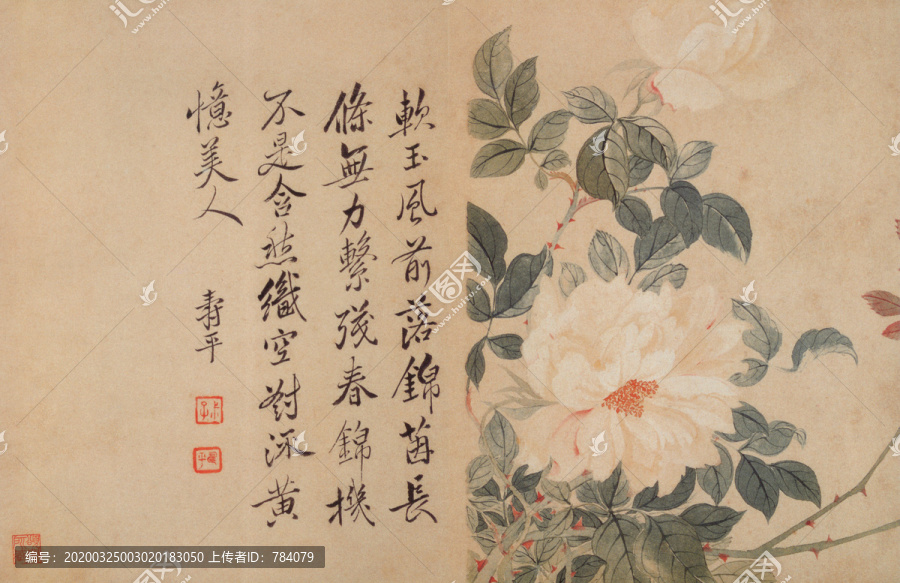 軟玉風前落錦茵長
條無力繫殘春錦機
不是含愁織空對流黃
憶美人
壽平
编号：20200325003020183050 上传者ID：784079